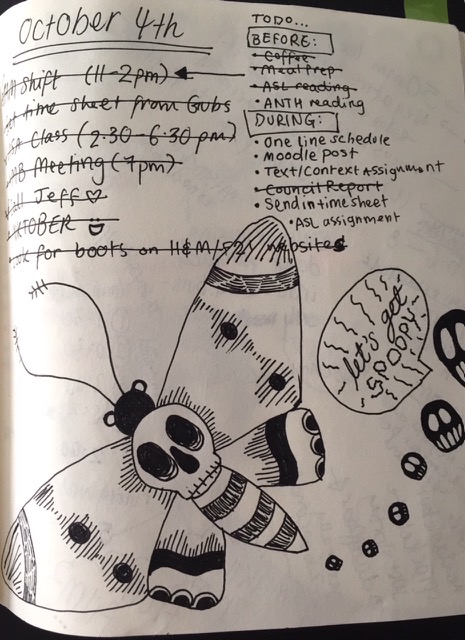 october 4th
Shift (11-2pm)
time sheet from Gubs
Class (2:30-6:30pm)
Meeting (7pm)
Jeff
for boots on H&M/F21 websites
TODO...
BEFORE:
• Coffee
• Meal Prep
• ASL reading
• ANTH reading
DURING:
• One line schedule
• Moodle post
• Text/Context Assignment
• Council Report
• Send in time sheet
• ASL assignment
let's get
SPOOPY